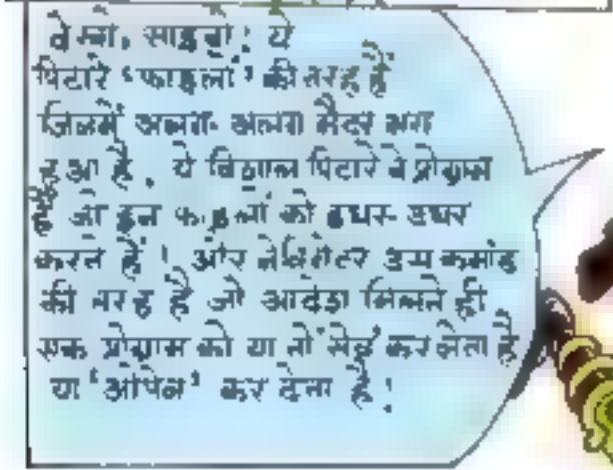 देखो, साइनो! ये
पिटारे 'फाइलों' की तरह हैं
जिनमें अलग-अलग मैटर भरा
हुआ है. ये विशाल पिटारे वे प्रोग्राम
हैं जो इन फाइलों को इधर-उधर
करते हैं! और नेविगेटर उस कमांड
की तरह है जो आदेश मिलते ही
एक प्रोग्राम को या तो 'सेव' कर लेता है
या 'ओपेन' कर देता है!